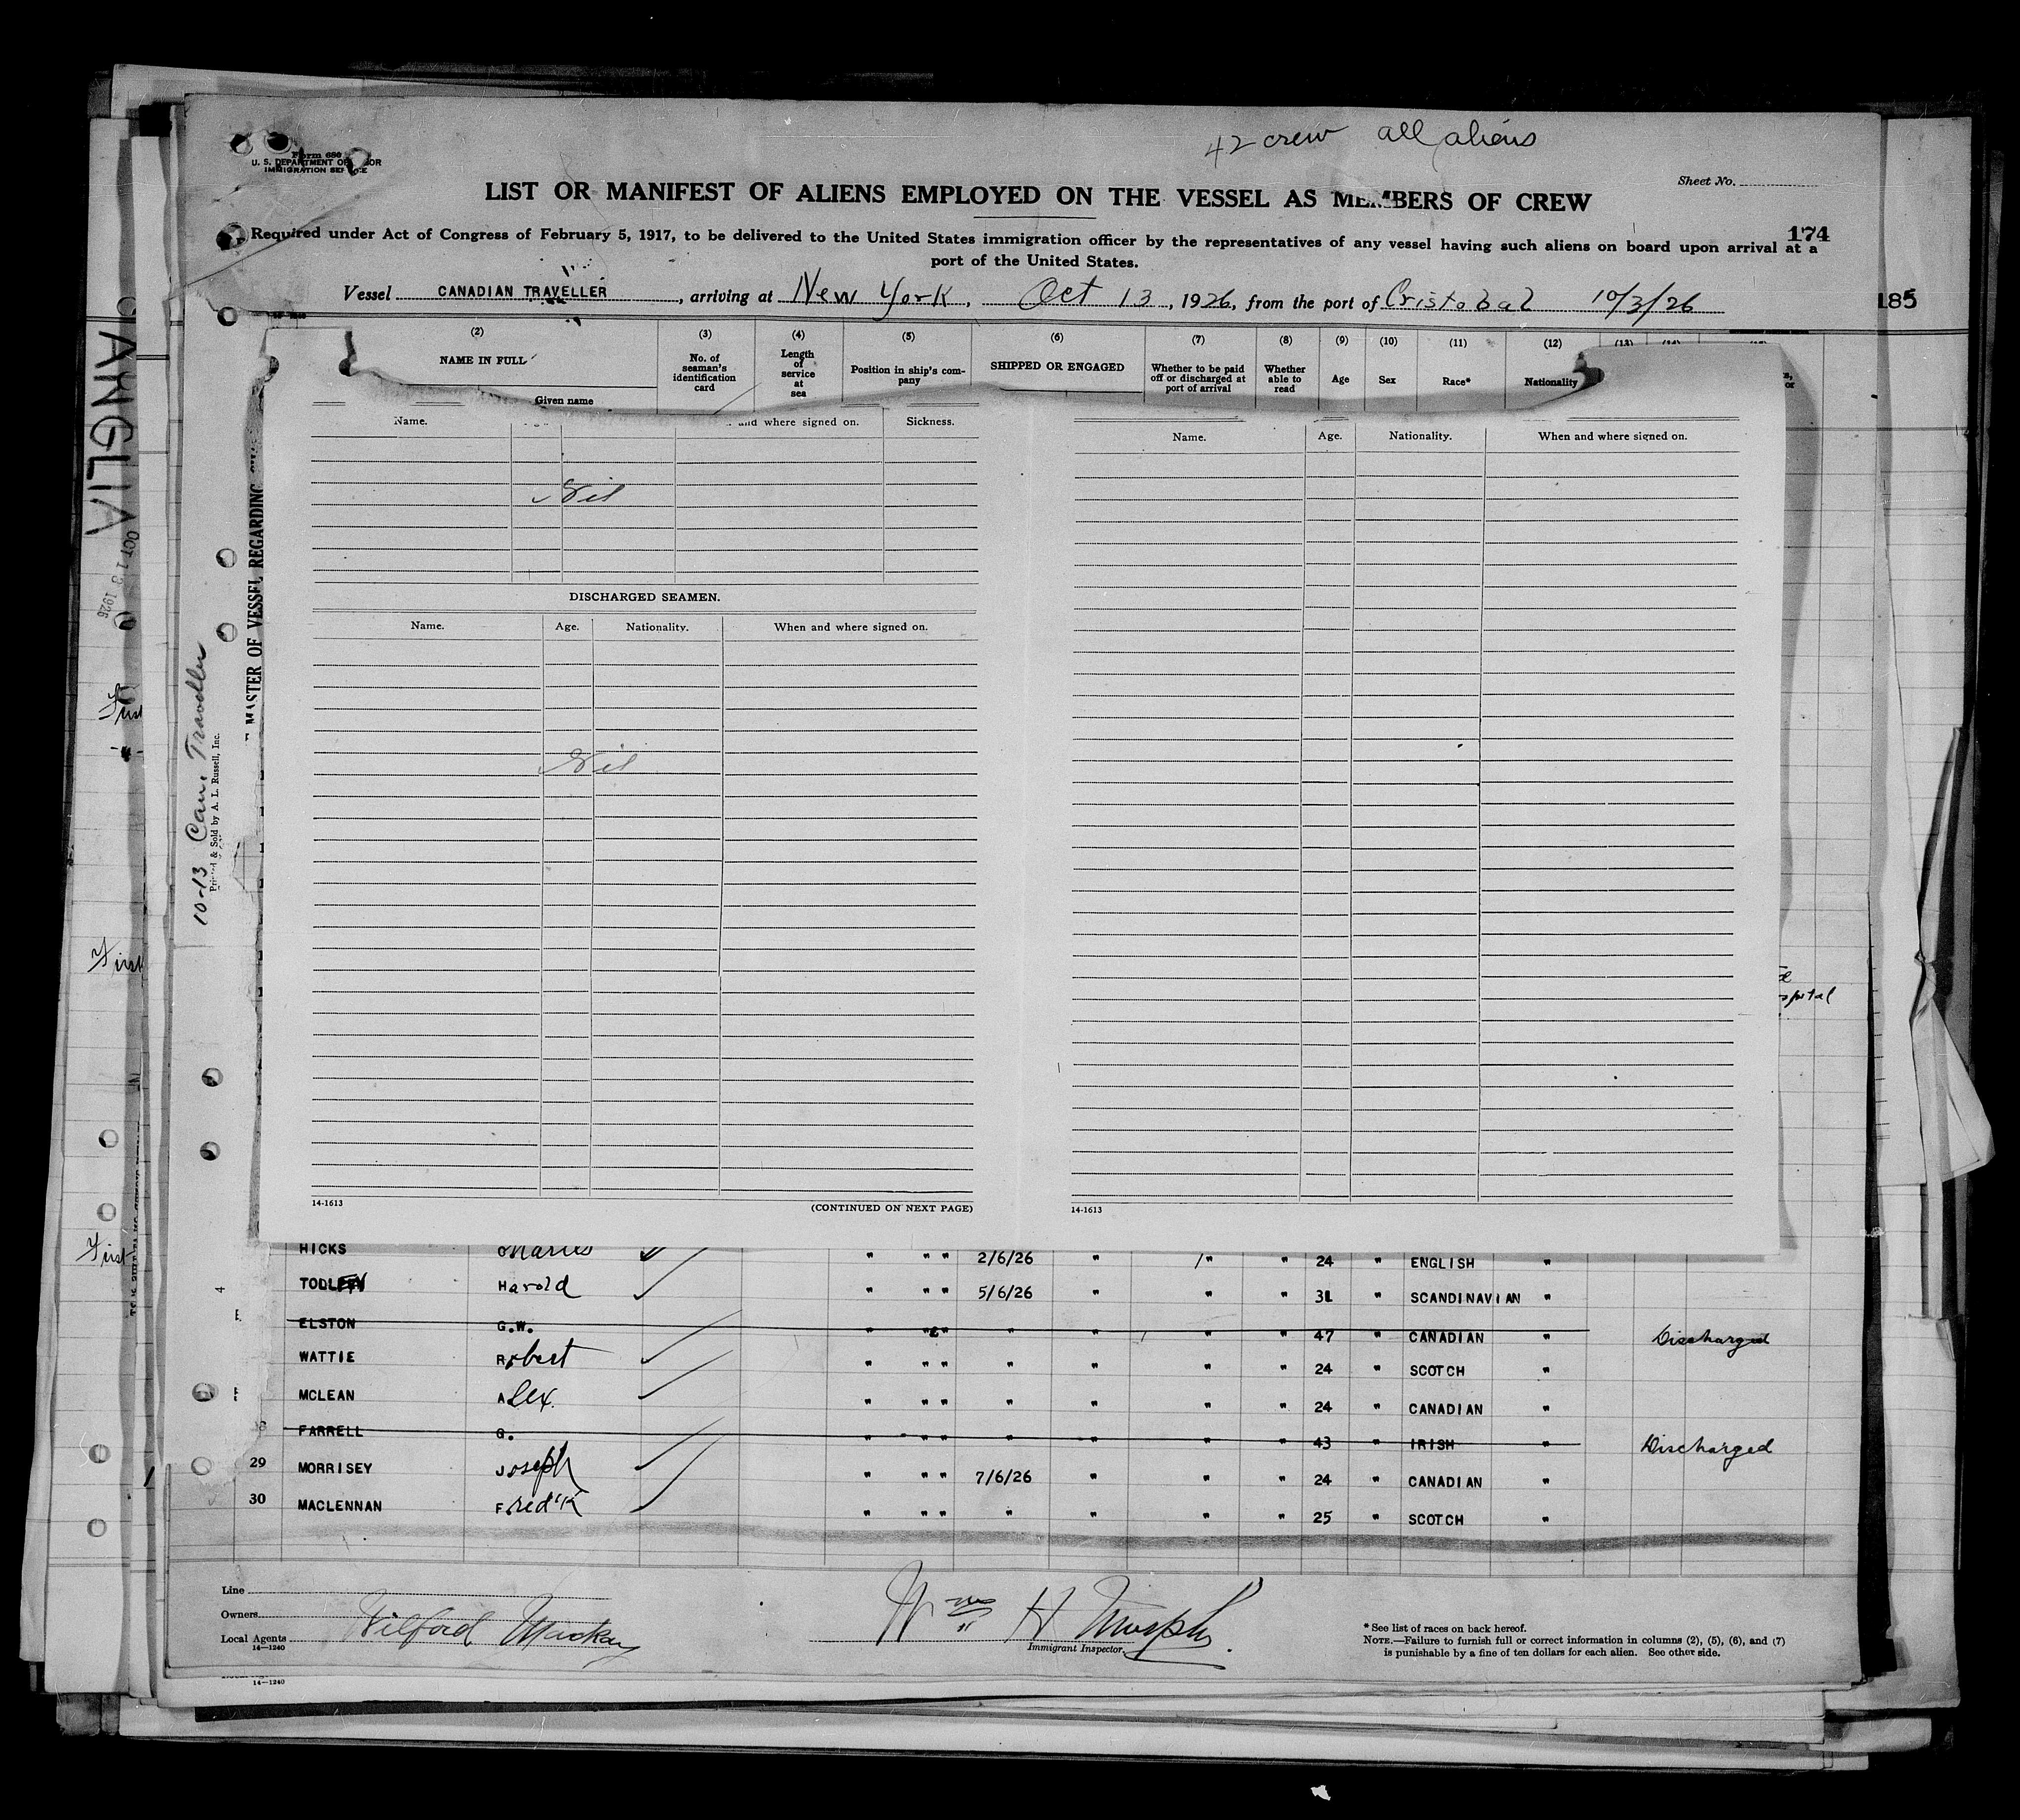 42 crew all aliens
Form 680
U. S. DEPARTMENT OF LABOR
IMMIGRATION SERVICE
Sheet No.
LIST OR MANIFEST OF ALIENS EMPLOYED ON THE VESSEL AS MEMBERS OF CREW
174
Required under Act of Congress of February 5, 1917, to be delivered to the United States immigration officer by the representatives of any vessel having such aliens on board upon arrival at a
port of the United States.
Vessel CANADIAN TRAVELLER, arriving at New York, Oct 13, 1926, from the port of Cristobal 10/3/26
185
(2) (3) (4) (5) (6) (7) (8) (9) (10) (11) (12) (13)
NAME IN FULL No. of seaman's identification card Length of service at sea Position in ship's company SHIPPED OR ENGAGED Whether to be paid off or discharged at port of arrival Whether able to read Age Sex Race* Nationality
Given name
Name. and where signed on. Sickness.
Nil
DISCHARGED SEAMEN.
Name. Age. Nationality. When and where signed on.
Nil
14-1613 (CONTINUED ON NEXT PAGE)
Name. Age. Nationality. When and where signed on.
14-1613
ANGLIA
OCT 13 1926
First
First
10-13 Can. Traveller
Printed & Sold by A. L. Russell, Inc.
MASTER OF VESSEL REGARDING
HICKS Charles " " " 2/6/26 " " " 24 " ENGLISH "
TODL Harold " " " 5/6/26 " " " 31 " SCANDINAVIAN "
ELSTON G.W. " " " " " " 47 " CANADIAN " Discharged
WATTIE Robert " " " " " " " 24 " SCOTCH "
MCLEAN Alex. " " " " " " " 24 " CANADIAN "
FARRELL G. " " " " " " " 43 " IRISH " Discharged
29 MORRISEY Joseph " " " 7/6/26 " " " 24 " CANADIAN "
30 MACLENNAN Fred'k " " " " " " " 25 " SCOTCH "
Line
Owners
Local Agents Wilford Mackay
14-1240
Wm H Murphy.
Immigrant Inspector.
* See list of races on back hereof.
NOTE.—Failure to furnish full or correct information in columns (2), (5), (6), and (7)
is punishable by a fine of ten dollars for each alien. See other side.
14-1240